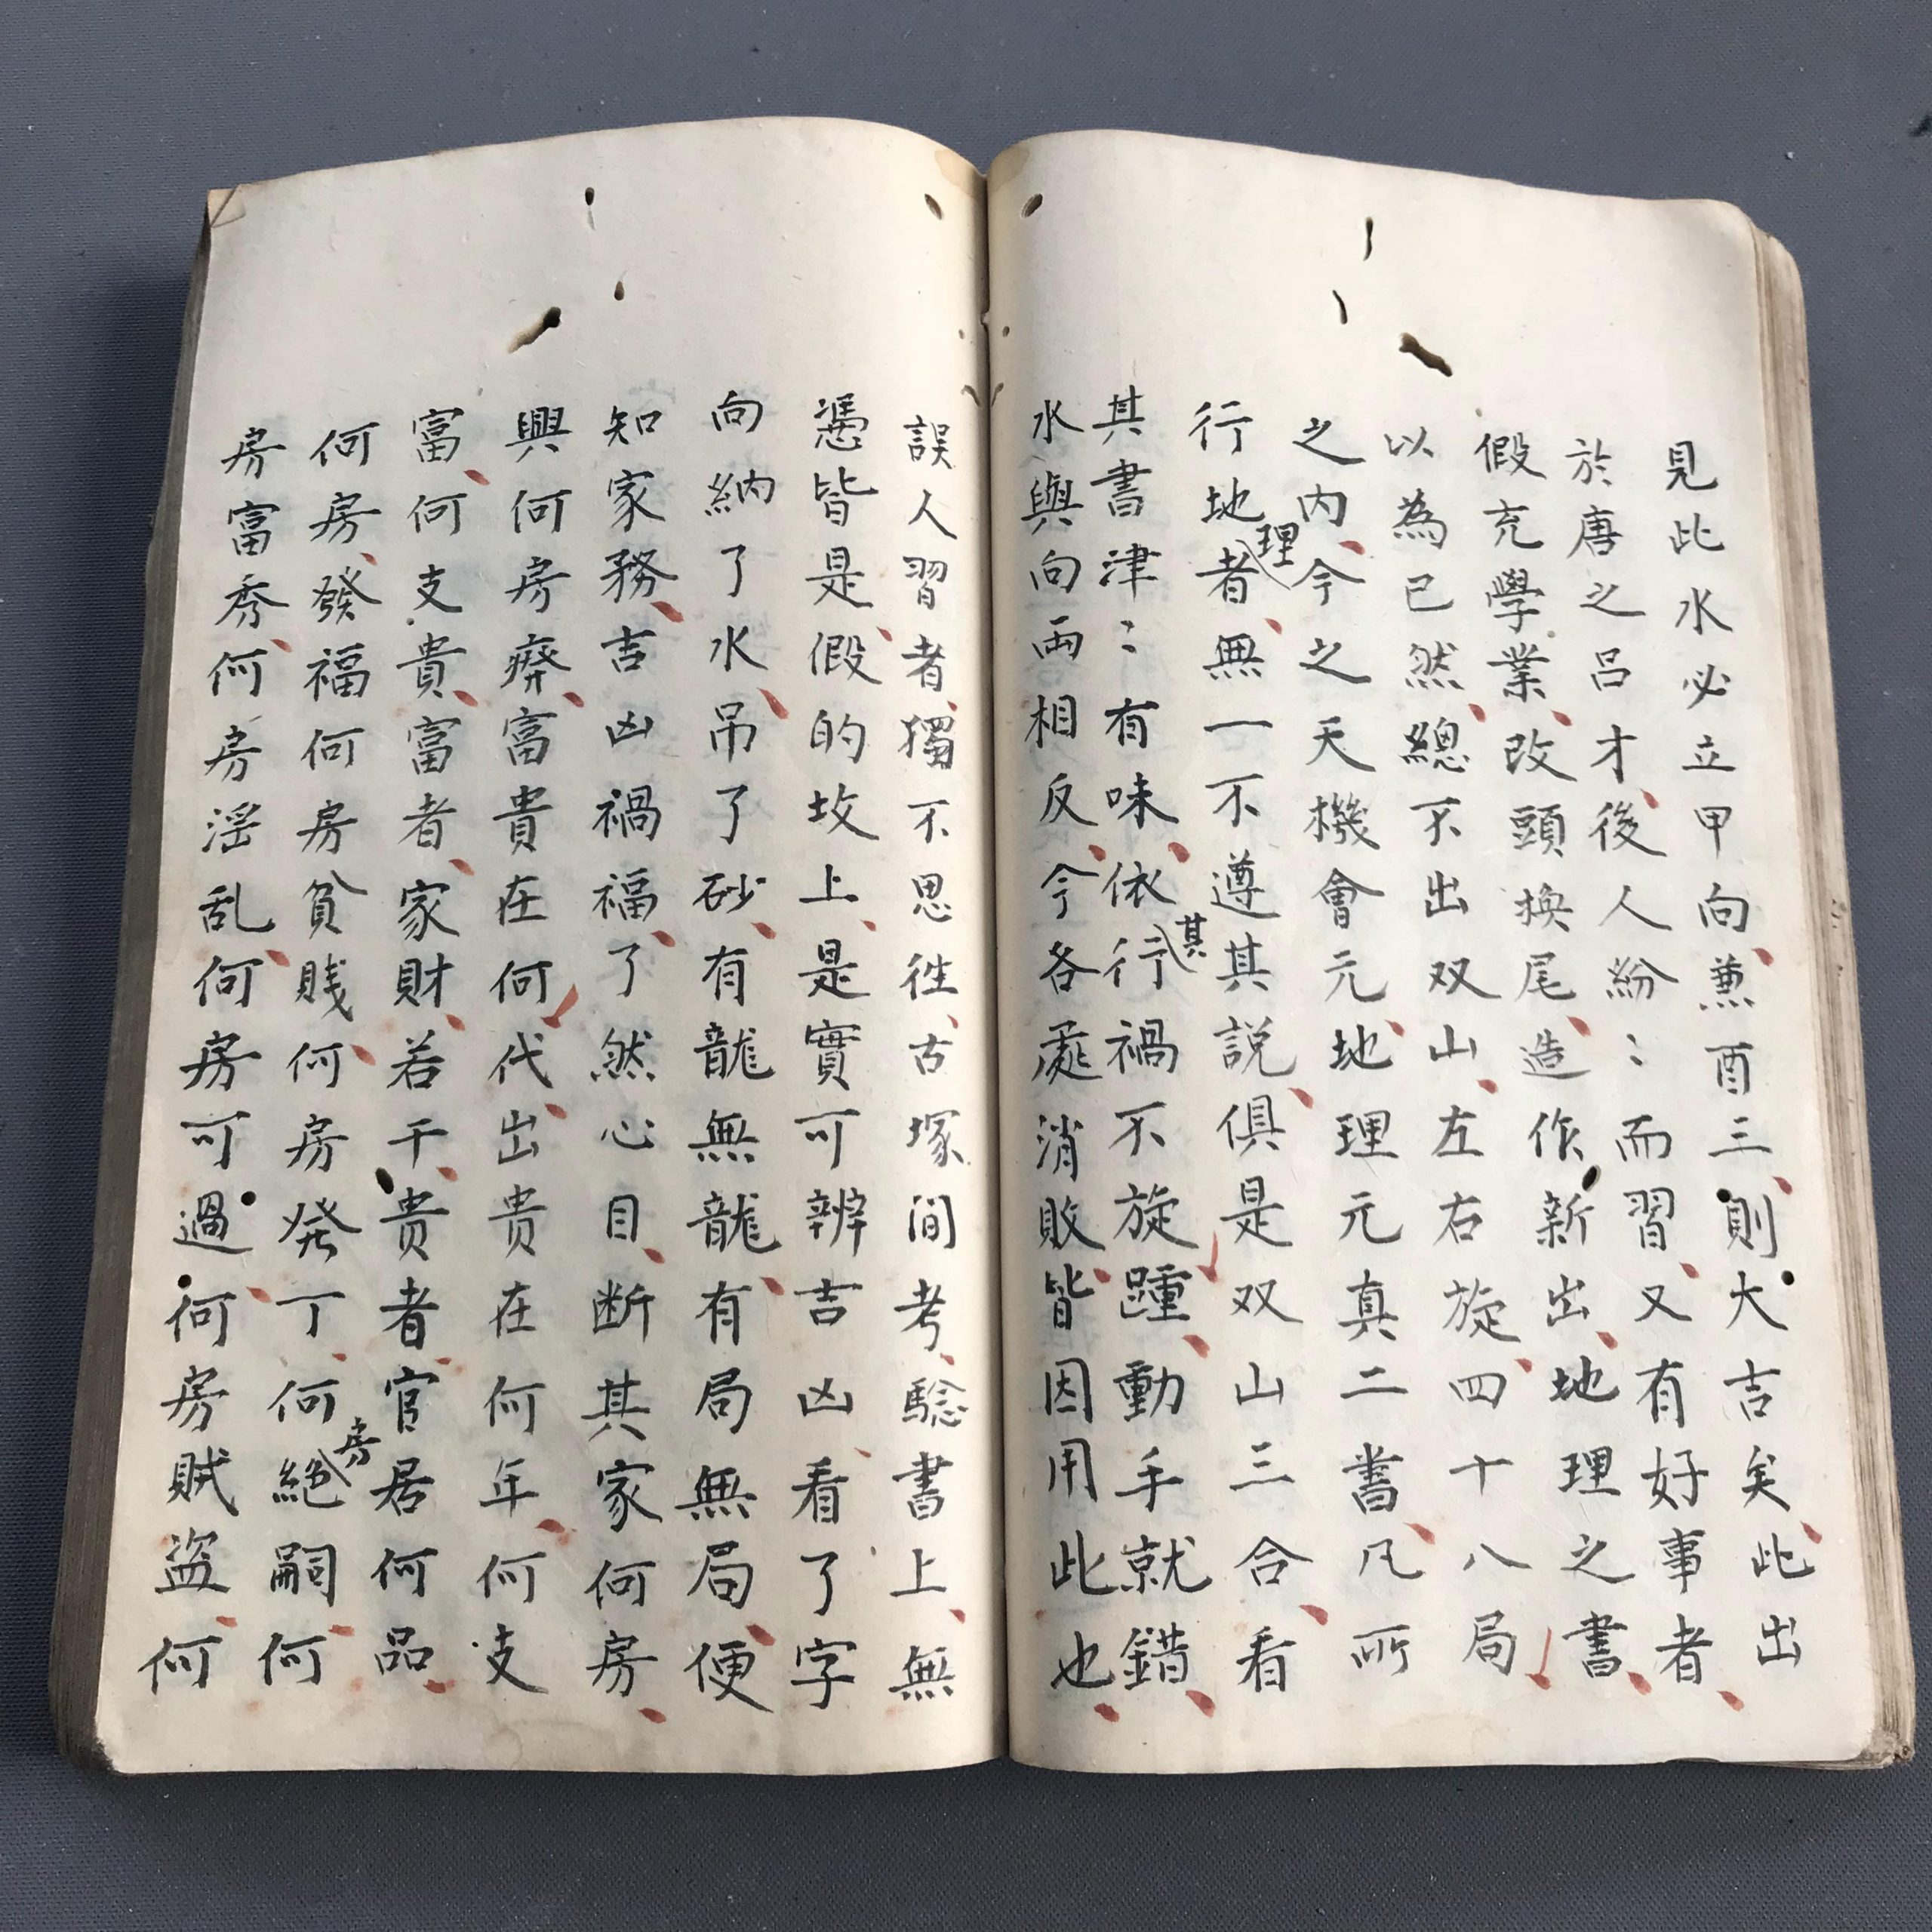 見此水必立甲向兼酉三則大吉矣此出
於唐之呂才後人紛：而習又有好事者
假充學業改頭換尾造作新出地理之書
以為已然總不出双山左右旋四十八局
之内今之天機會元地理元真二書凡所
行地理者無一不遵其説俱是双山三合看
其書津：有味依其行禍不旋踵動手就錯
水與向両相反今各處消敗皆因用此也
誤人習者獨不思徃古塚間考騐書上無
憑皆是假的坟上是實可辨吉凶看了字
向納了水吊了砂有龍無龍有局無局便
知家務吉凶禍福了然心目断其家何房
興何房癈富貴在何代出贵在何年何支
富何支貴富者家財若干贵者官居何品
何房發福何房貧賤何房発丁何房絕嗣何
房富秀何房淫乱何房可過何房賊盗何